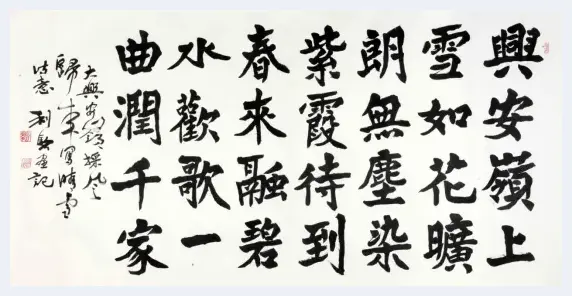 興安嶺上
雪如花曠
朗無塵染
紫霞待到
春來融碧
水歡歌一
曲潤千家
大興安嶺採風
歸來寫晴雪
詩意 記